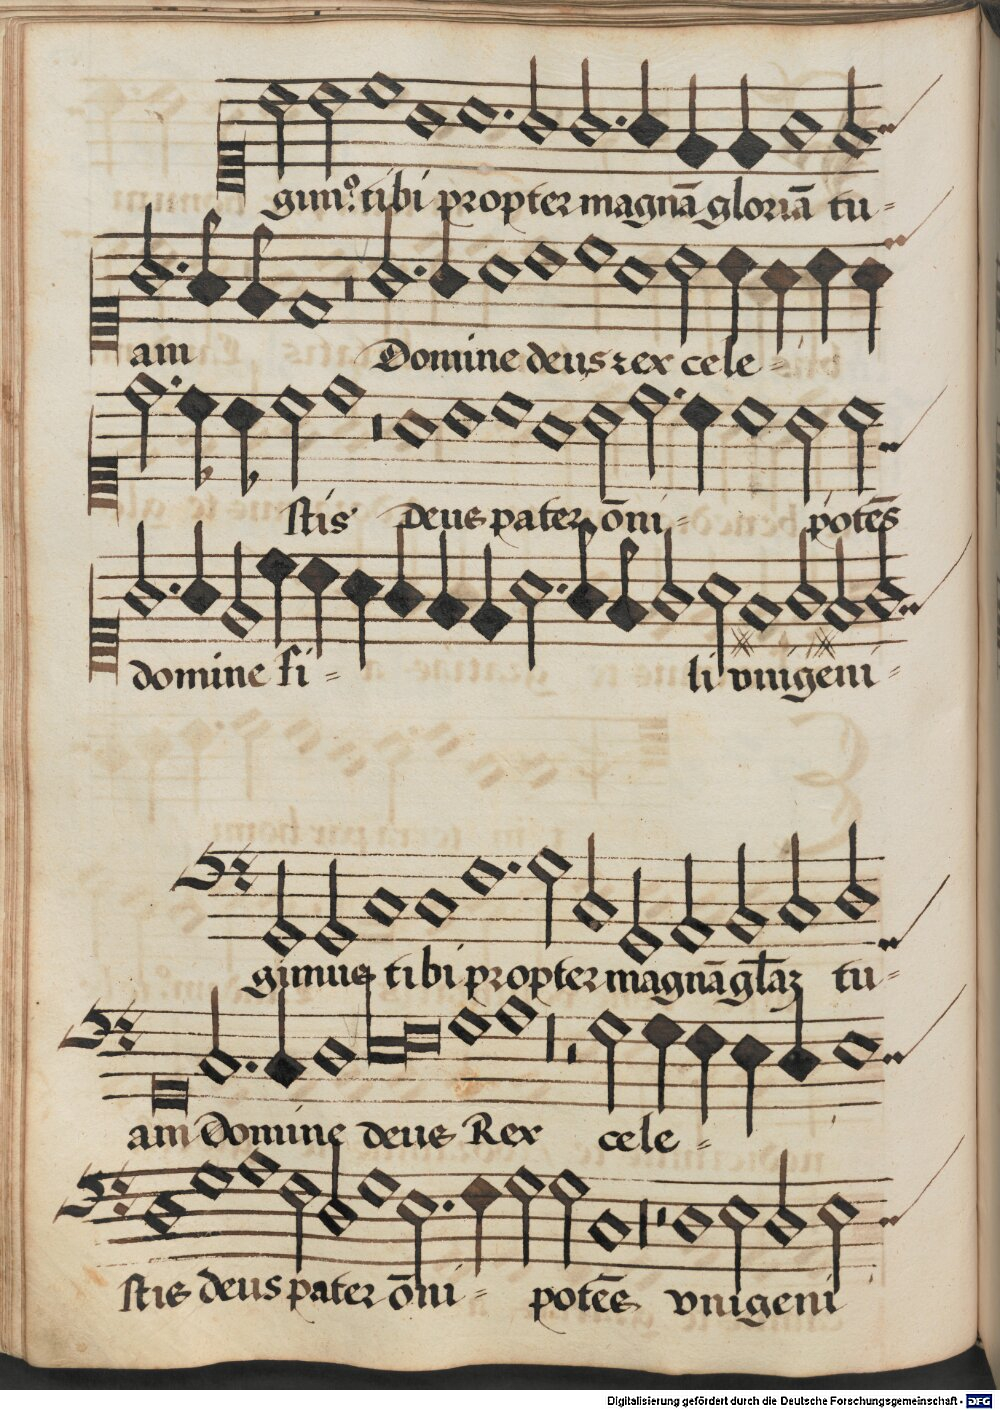 gim⁹ tibi propter magnā gloriā tu-
am Domine deus rex cele-
stis deus pater ōni- potēs
domine fi- li vnigeni-
gimus tibi propter magnā tu-
am Domine deus Rex cele-
stis deus pater ōni- potēs vnigeni
Digitalisierung gefördert durch die Deutsche Forschungsgemeinschaft - DFG